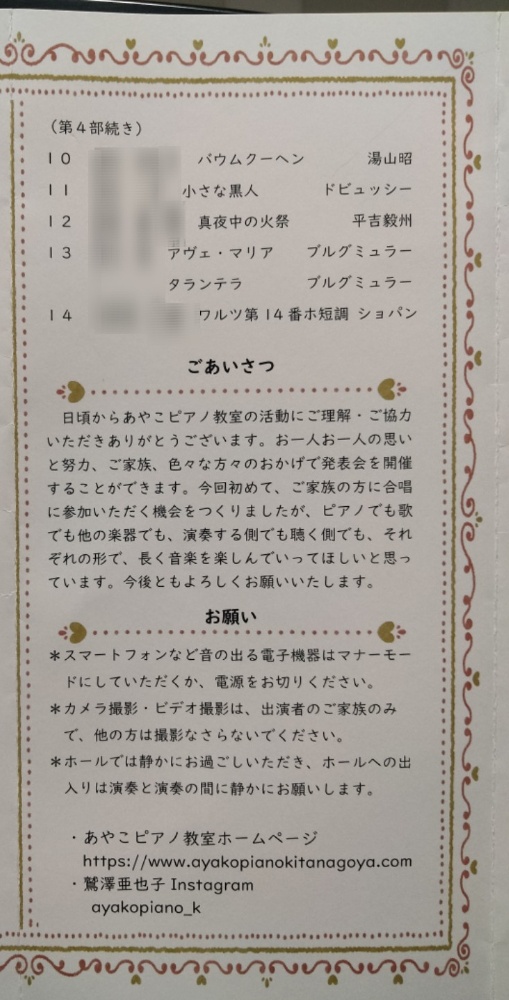 （第４部続き）
１０ バウムクーヘン 湯山昭
１１ 小さな黒人 ドビュッシー
１２ 真夜中の火祭 平吉毅州
１３ アヴェ・マリア ブルグミュラー
タランテラ ブルグミュラー
１４ ワルツ第14番ホ短調 ショパン
ごあいさつ
　日頃からあやこピアノ教室の活動にご理解・ご協力
いただきありがとうございます。お一人お一人の思い
と努力、ご家族、色々な方々のおかげで発表会を開催
することができます。今回初めて、ご家族の方に合唱
に参加いただく機会をつくりましたが、ピアノでも歌
でも他の楽器でも、演奏する側でも聴く側でも、それ
ぞれの形で、長く音楽を楽しんでいってほしいと思っ
ています。今後ともよろしくお願いいたします。
お願い
＊スマートフォンなど音の出る電子機器はマナーモー
ドにしていただくか、電源をお切りください。
＊カメラ撮影・ビデオ撮影は、出演者のご家族のみ
で、他の方は撮影なさらないでください。
＊ホールでは静かにお過ごしいただき、ホールへの出
入りは演奏と演奏の間に静かにお願いします。
・あやこピアノ教室ホームページ
https://www.ayakopianokitanagoya.com
・鷲澤亜也子 Instagram
ayakopiano_k